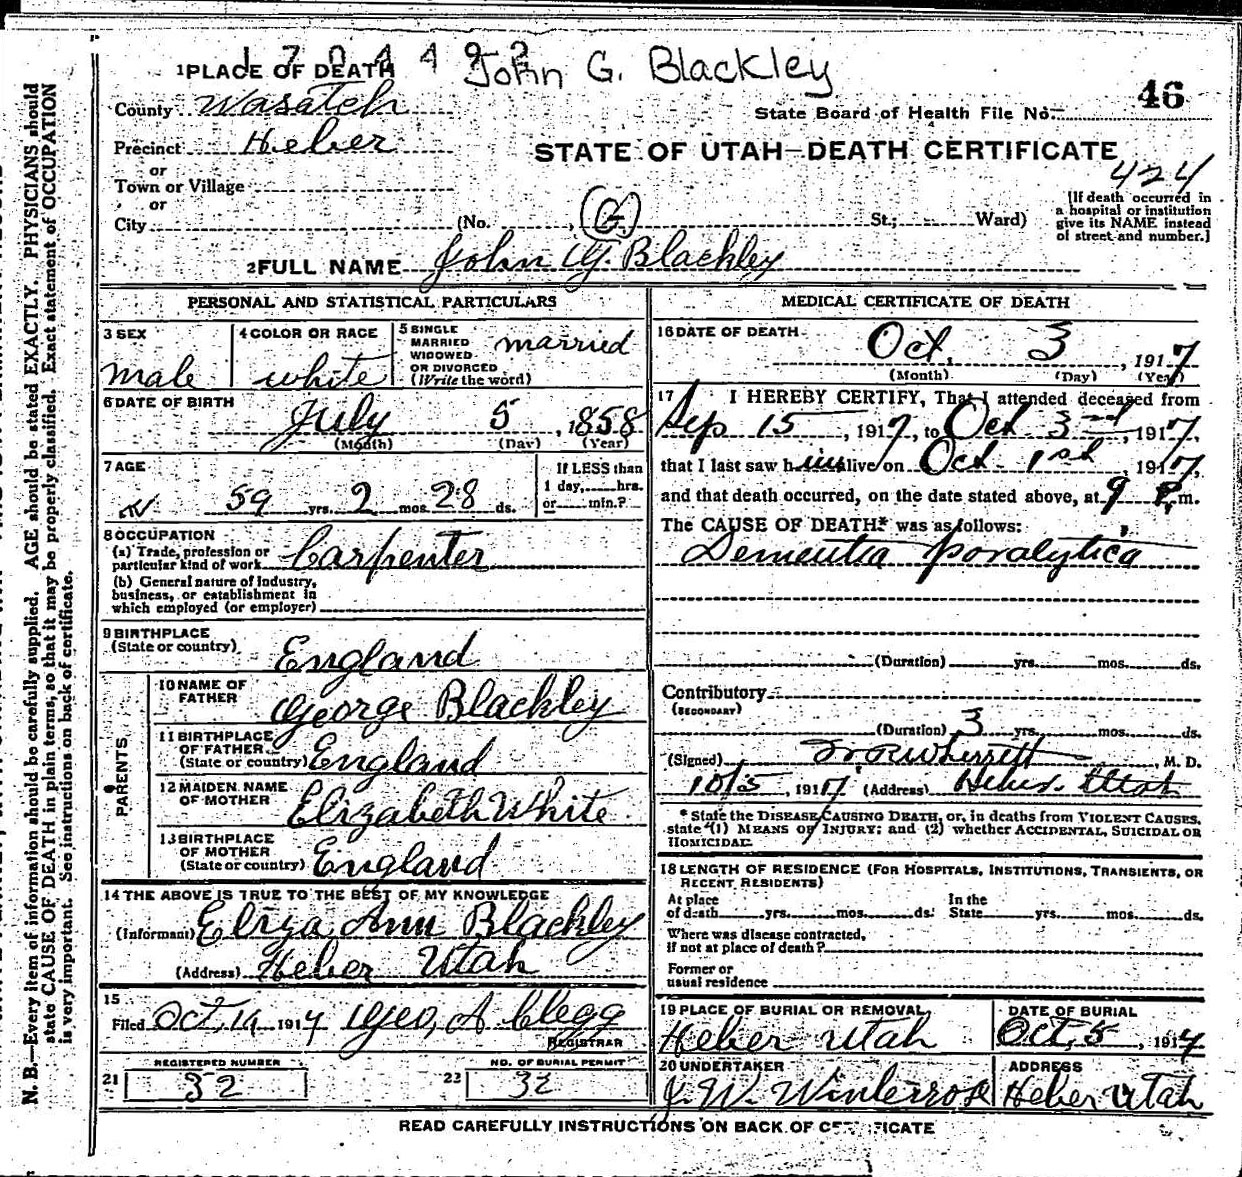 1704492
John G. Blackley
1 PLACE OF DEATH
46
County Wasatch
State Board of Health File No.
Precinct Heber
STATE OF UTAH—DEATH CERTIFICATE
or
424
Town or Village
or
City (No. G. St.; Ward)
[If death occurred in
a hospital or institution
give its NAME instead
of street and number.]
2 FULL NAME John G. Blackley
PERSONAL AND STATISTICAL PARTICULARS
3 SEX
male
4 COLOR OR RACE
white
5 SINGLE
MARRIED
WIDOWED
OR DIVORCED
(Write the word)
married
6 DATE OF BIRTH
July 5, 1858
(Month) (Day) (Year)
7 AGE
59 yrs. 2 mos. 28 ds.
If LESS than
1 day, hrs.
or min.?
8 OCCUPATION
(a) Trade, profession or
particular kind of work Carpenter
(b) General nature of Industry,
business, or establishment in
which employed (or employer)
9 BIRTHPLACE
(State or country) England
PARENTS
10 NAME OF
FATHER George Blackley
11 BIRTHPLACE
OF FATHER
(State or country) England
12 MAIDEN NAME
OF MOTHER Elizabeth White
13 BIRTHPLACE
OF MOTHER
(State or country) England
14 THE ABOVE IS TRUE TO THE BEST OF MY KNOWLEDGE
(Informant) Eliza Ann Blackley
(Address) Heber Utah
15
Filed Oct, 19 1917 Geo, A Clegg
REGISTRAR
REGISTERED NUMBER
21 32
NO. OF BURIAL PERMIT
22 32
MEDICAL CERTIFICATE OF DEATH
16 DATE OF DEATH
Oct, 3, 1917
(Month) (Day) (Year)
17 I HEREBY CERTIFY, That I attended deceased from
Sep 15, 1917, to Oct 3rd, 1917,
that I last saw him alive on Oct. 1st, 1917,
and that death occurred, on the date stated above, at 9 P.m.
The CAUSE OF DEATH* was as follows:
Dementia paralytica
(Duration) yrs. mos. ds.
Contributory
(SECONDARY)
(Duration) 3 yrs. mos. ds.
(Signed) Wherrett, M. D.
10/5, 1917 (Address) Heber. Utah
* State the DISEASE CAUSING DEATH, or, in deaths from VIOLENT CAUSES,
state (1) MEANS OF INJURY; and (2) whether ACCIDENTAL, SUICIDAL OR
HOMICIDAL.
18 LENGTH OF RESIDENCE (FOR HOSPITALS, INSTITUTIONS, TRANSIENTS, OR
RECENT RESIDENTS)
At place
of death yrs. mos. ds.
In the
State yrs. mos. ds.
Where was disease contracted,
if not at place of death?
Former or
usual residence
19 PLACE OF BURIAL OR REMOVAL
Heber Utah
DATE OF BURIAL
Oct, 5, 1917
20 UNDERTAKER
J. W. Winterrose
ADDRESS
Heber Utah
READ CAREFULLY INSTRUCTIONS ON BACK OF CERTIFICATE
N. B.—Every item of information should be carefully supplied. AGE should be stated EXACTLY. PHYSICIANS should
state CAUSE OF DEATH in plain terms, so that it may be properly classified. Exact statement of OCCUPATION
is very important. See instructions on back of certificate.